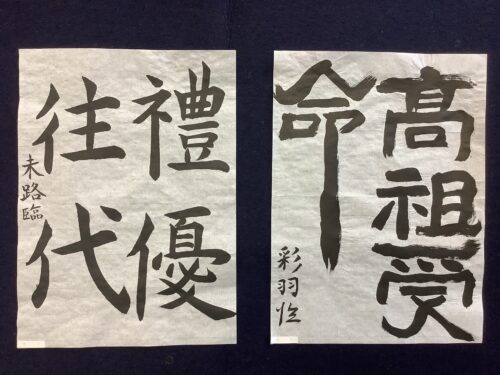 高祖受
命
彩羽臨
禮優
往代
未路臨